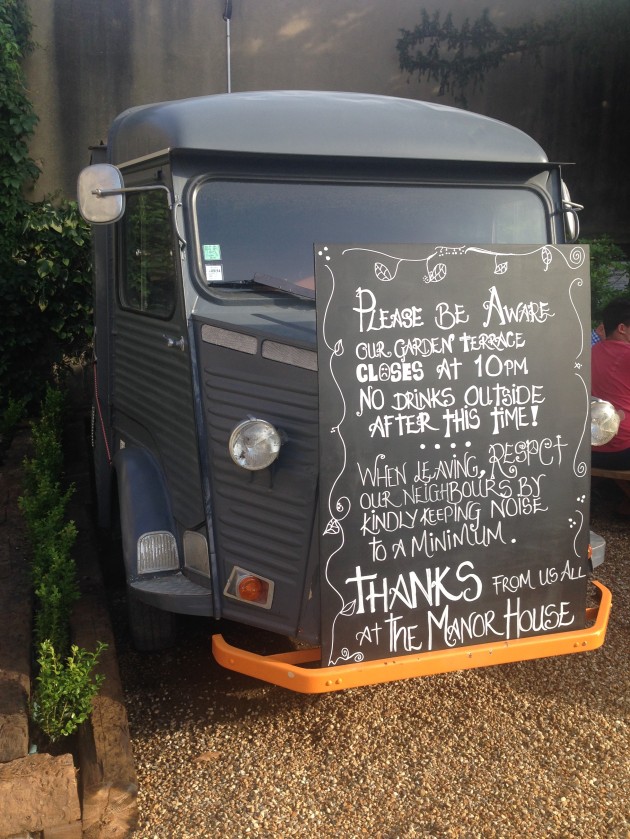 Please Be Aware
our garden terrace
closes at 10pm
No drinks outside
after this time!
When leaving, respct
our neighbours by
kindly keeping noise
to a minimum.
Thanks from us all
at The Manor House